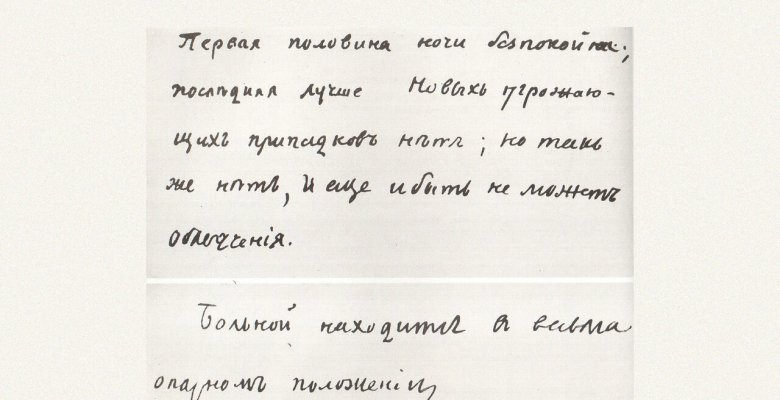 Первая половина ночи безпокойна;
послѣдняя лучше Новыхъ угрожаю-
щихъ припадковъ нѣтъ; но такъ
же нѣтъ, и еще и быть не можетъ
облегченія.
Больной находится въ весьма
опасномъ положеніи